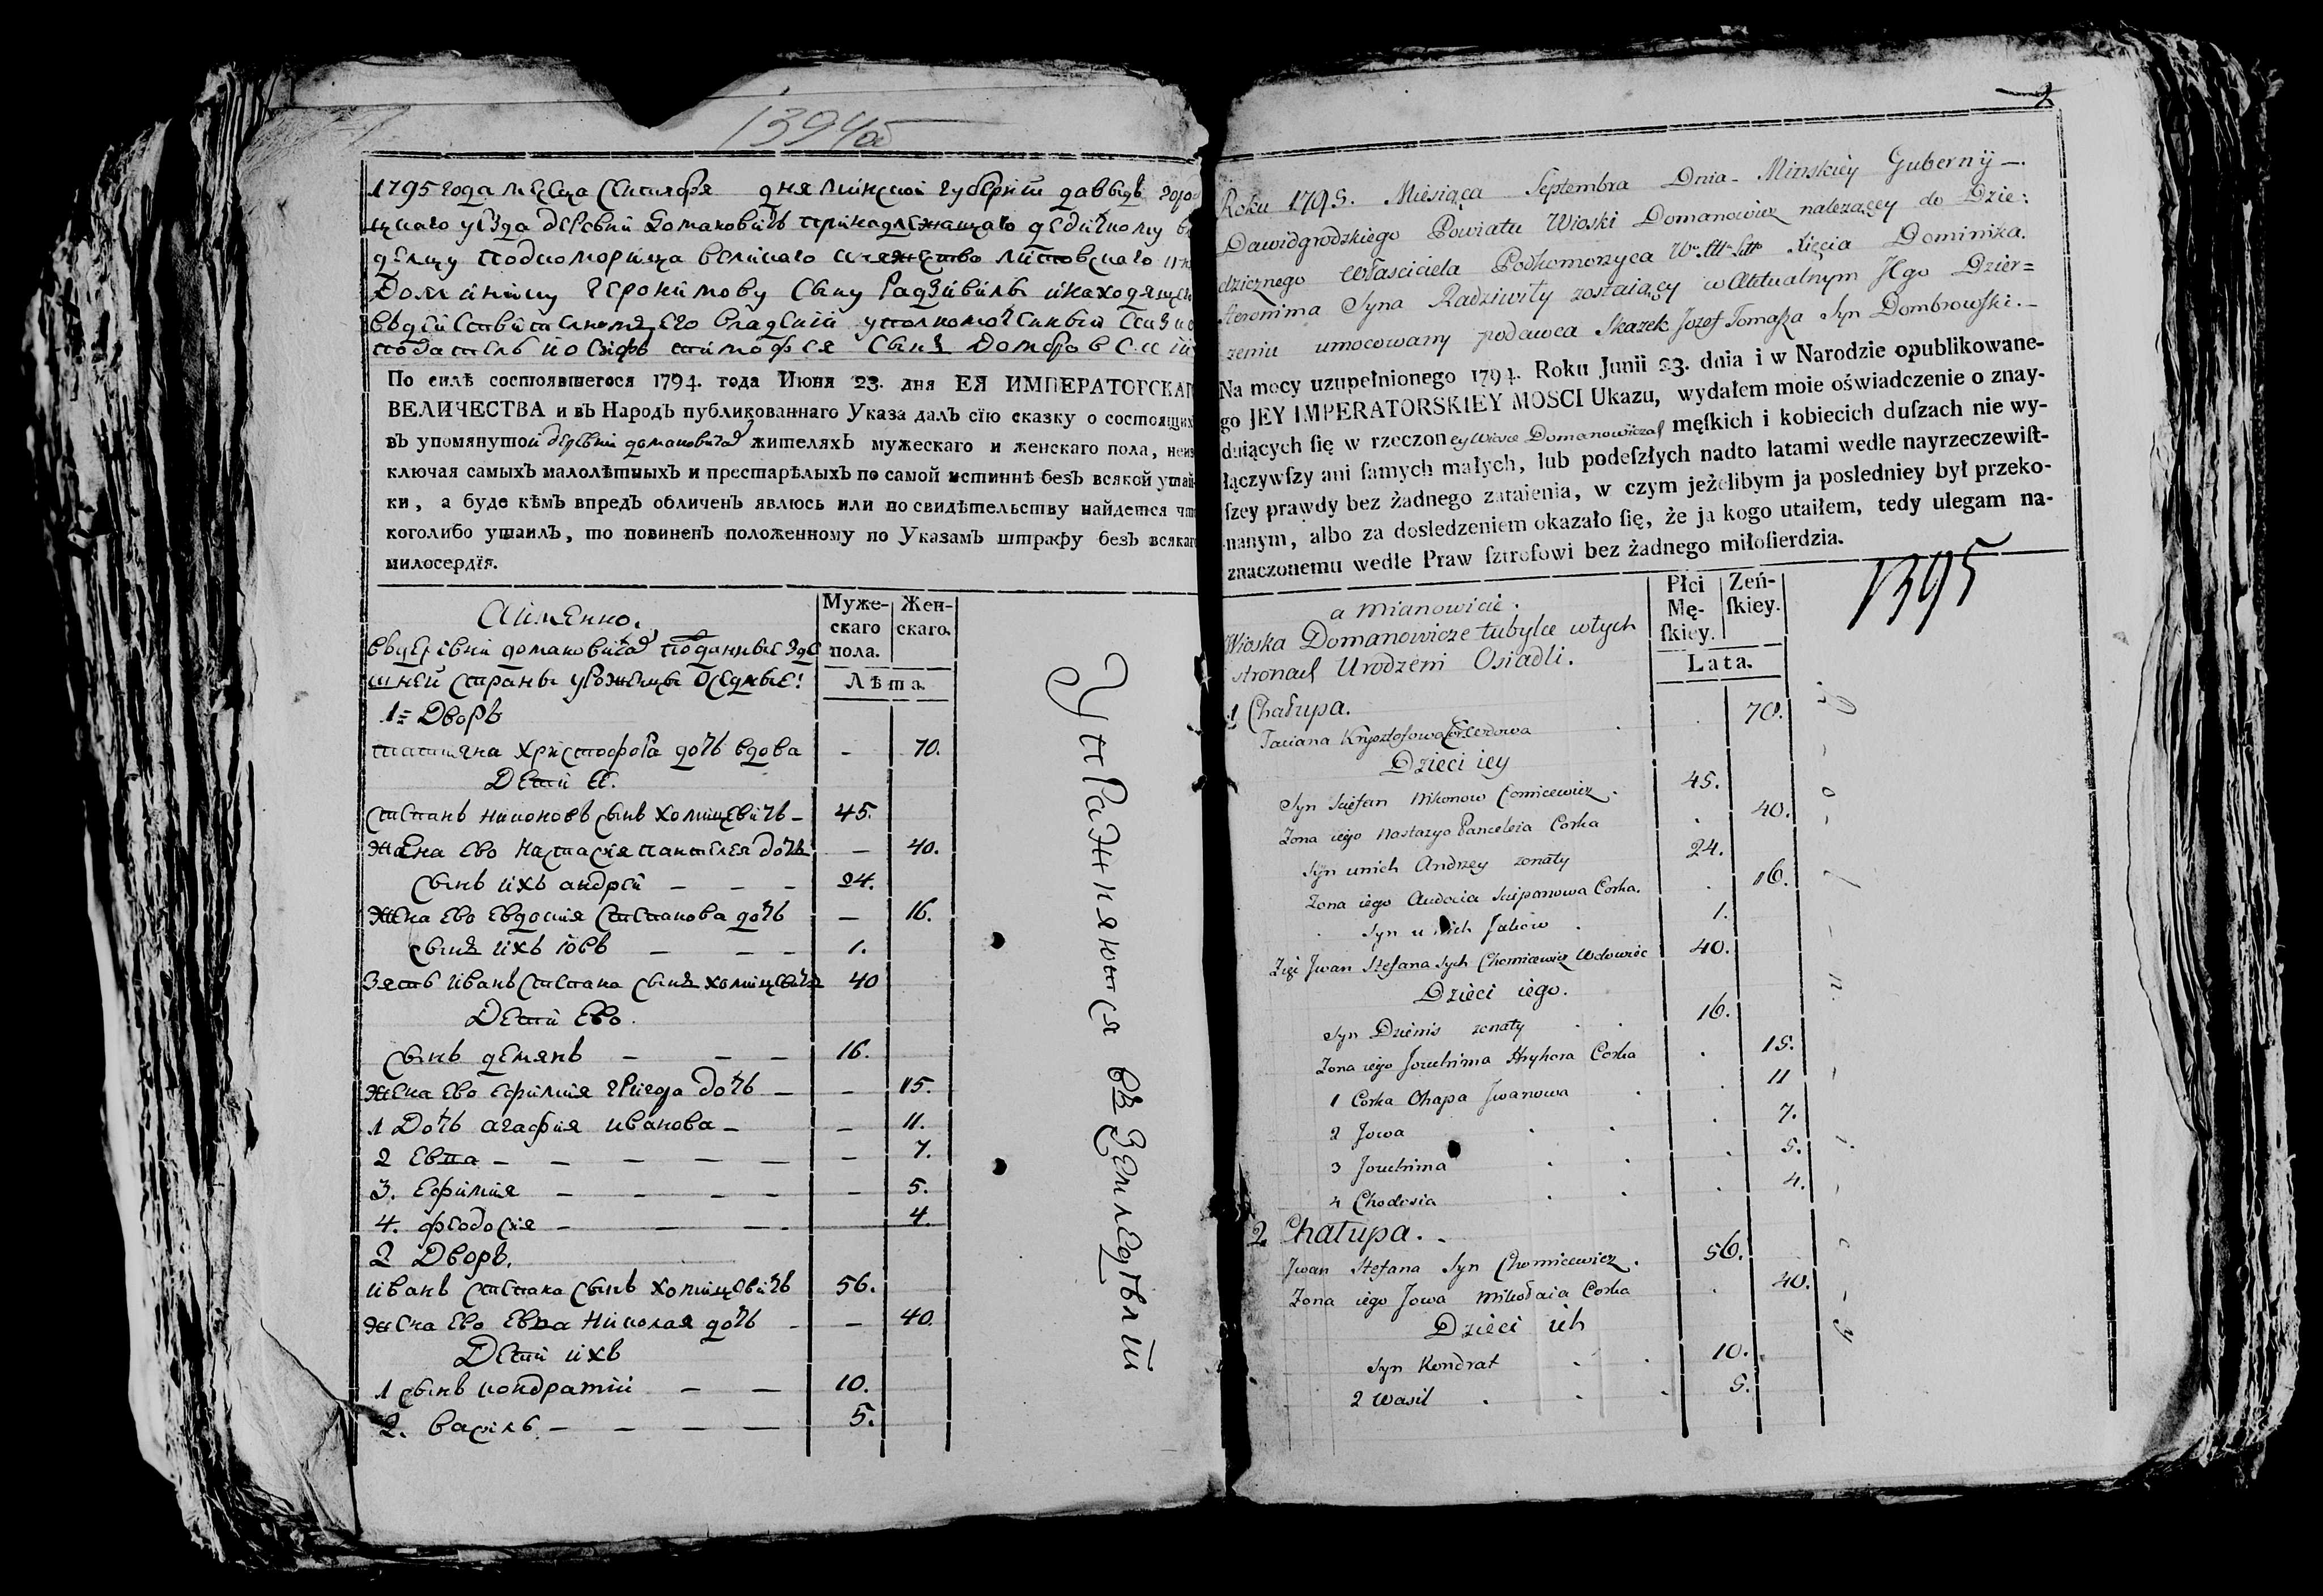 1394об
1795 года месяца Сентября дня минской губернии давыдъ горо
цкаго уезда деревни Домановичъ принадлежащаго дедичному в
делцу подкоморица великаго княжество литовскаго
Доминику Иеронимову сыну Радзивилу инаходящ
вдействителномъ его владении уполномоченный
податель иосифъ тимофея сынъ Домбровский
По силѣ состоявшегося 1794. года Июня 23. дня ЕЯ ИМПЕРАТОРСКАГ
ВЕЛИЧЕСТВА и въ Народъ публикованнаго Указа далъ сїю сказку о состоящих
въ упомянутой деревни домановичах жителяхъ мужескаго и женскаго пола, неиз
ключая самыхъ малолѣтныхъ и престарѣлыхъ по самой истиннѣ безъ всякой утай
ки, а буде кѣмъ впредъ обличенъ явлюсь или по свидѣтельству найдется что
коголибо утаилъ, то повиненъ положенному по Указамъ штрафу безъ всякаго
милосердїя.
Аименно.
Муже-скаго пола.
Жен-скаго.
вдеревни домановичах подданные зде
шней страны уроженцы оседлые:
Лѣта.
1= Дворъ
татияна христофора дочь вдова – 70.
Дети ее.
степанъ никоновъ сынъ хомицевичъ – 45.
жена ево настасия пантелея дочь – 40.
сынъ ихъ андрей – – – 24.
жена ево евдокия степанова дочь – 16.
сынъ ихъ іовъ – – – 1.
зять иванъ степана сынъ хомицевичъ 40
Дети ево.
сынъ демянъ – – – 16.
жена ево ефимия григора дочь – – 15.
1 Дочь агафия иванова – – 11.
2 евпа – – – – – – 7.
3. ефимия – – – – – 5.
4. феодосия – – – – 4.
2 Дворъ.
иванъ степана сынъ хомицевичъ 56.
жена ево евпа николая дочь – – 40.
Дети ихъ
1 сынъ кондратий – – 10.
2. василь – – – – 5.
Упражняются въ земледелии
2
Roku 1795. Miesiąca Septembra Dnia – Minskiey Gubernij –.
Dawidgrodzkiego Powiatu Wioski Domanowicz należącey do Dzie:
dzicznego Właściciela Podkomorzyca W. Litt: Xięcia Dominika.
Heronima Syna Radziwiły zostaiący w Aktualnym JEgo Dzier=
żeniu umocowany podawca Skazek Jozef Tomaſza Syn Dombrowſki. –
Na mocy uzupełnionego 1794. Roku Junii 23. dnia i w Narodzie opublikowane-
go JEY IMPERATORSKIEY MOSCI Ukazu, wydałem moie oświadczenie o znay-
duiących ſię w rzeczoney Wiosce Domanowiczach męſkich i kobiecich duſzach nie wy-
łączywſzy ani ſamych małych, lub podeſzłych nadto latami wedle nayrzeczewiſt-
ſzey prawdy bez żadnego zataienia, w czym jeżelibym ja posledniey był przeko-
nanym, albo za dosledzeniem okazało ſię, że ja kogo utaiłem, tedy ulegam na-
znaczonemu wedle Praw ſztrofowi bez żadnego miłoſierdzia.
1395
a mianowicie.
Płci Mę-ſkiey.
Zeń-ſkiey.
Wioska Domanowicze tubylce wtych
stronach Urodzeni Osiadli.
Lata.
1 Chałupa.
Taciana Krysztofowa Corka wdowa . . 70.
Dzieci iey
Syn Sciefan Nikonow Comicewicz . 45.
Zona iego Nastazya Panceleia Corka . 40.
Syn unich Andrzey zonaty 24.
Zona iego Audocia Sciepanowa Corka. . 16.
Syn u nich Jakow . 1.
Zięć Jwan Stefana Syn Chomicewicz Wdowiec 40.
Dzieci iego.
Syn Dziemis zonaty . . 16.
Zona iego Jouchima Hryhora Corka . 15.
1 Corka Ohapa Jwanowa . . 11
2 Jowa . . . 7.
3 Jouchima . . . 5.
4 Chodosia . . . 4.
2. Chałupa. .
Jwan Stefana Syn Chomicewicz . 56.
Zona iego Jowa Mikołaia Corka . 40.
Dzieci ich
Syn Kondrat . . 10.
2 Wasil . . . 5.
R – o – l – n – i – c – y